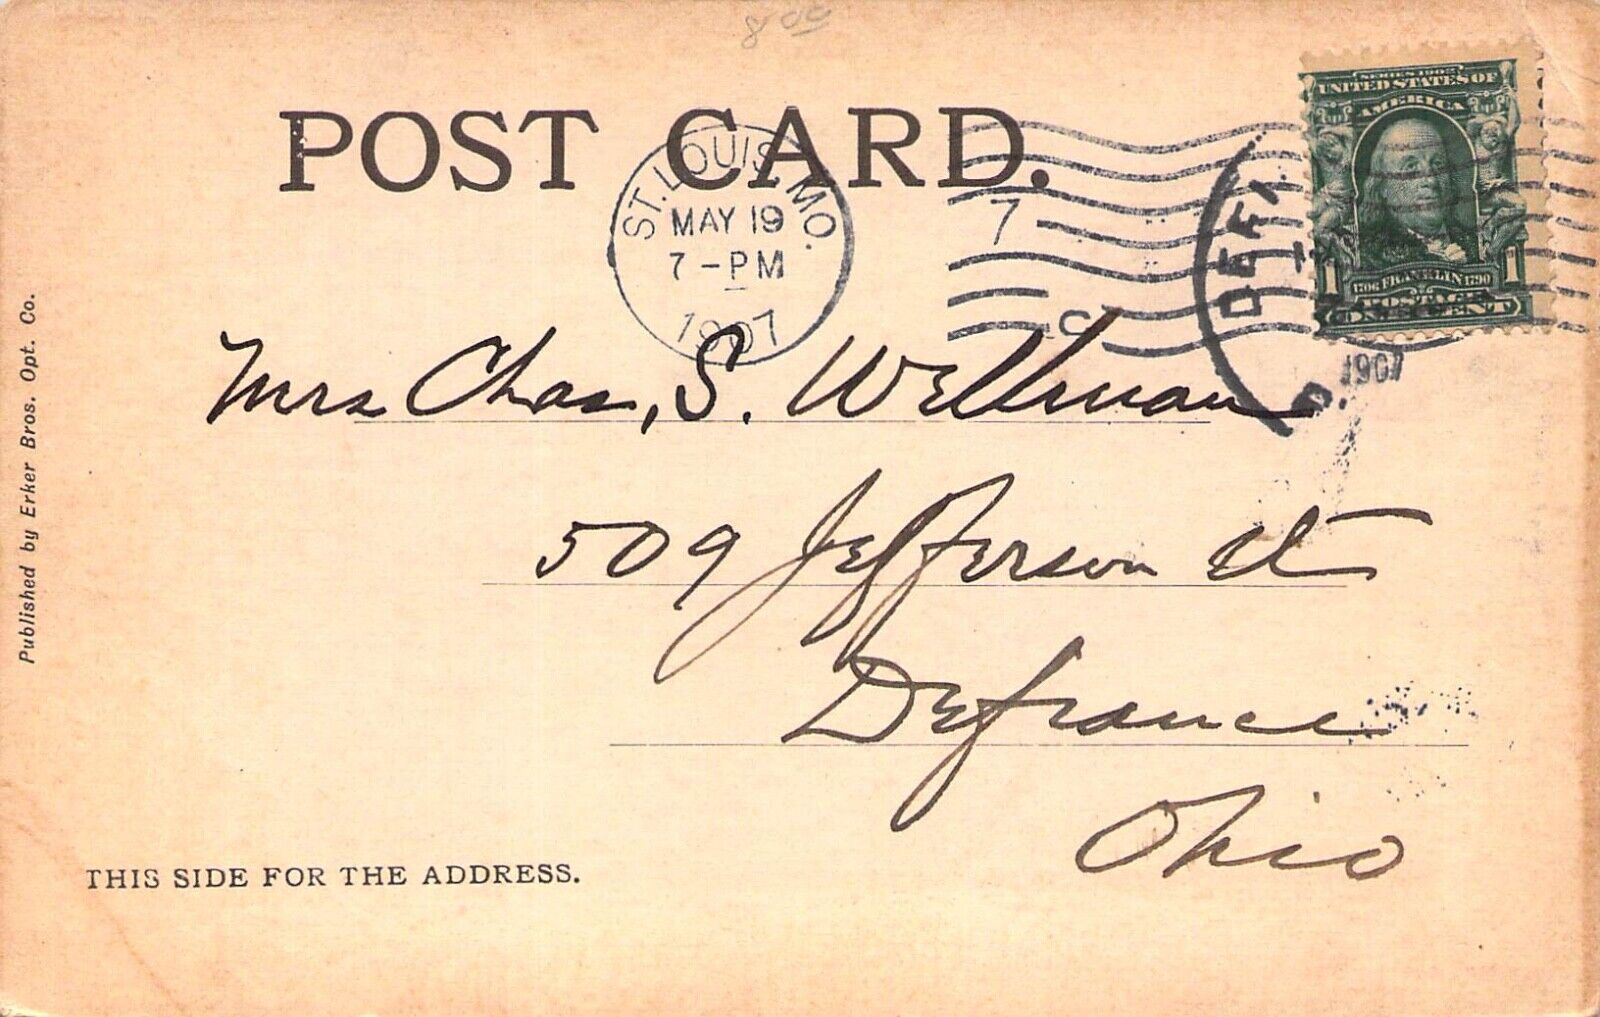 800
POST CARD.
ST. LOUIS, MO.
MAY 19
7-PM
1907
7
C
DEFI
1907
SERIES 1902
UNITED STATES OF
AMERICA
1 1
1706 FRANKLIN 1790
POSTAGE
ONE CENT
Mrs Chas, S. Wellman
509 Jefferson St
Defiance
Ohio
THIS SIDE FOR THE ADDRESS.
Published by Erker Bros. Opt. Co.